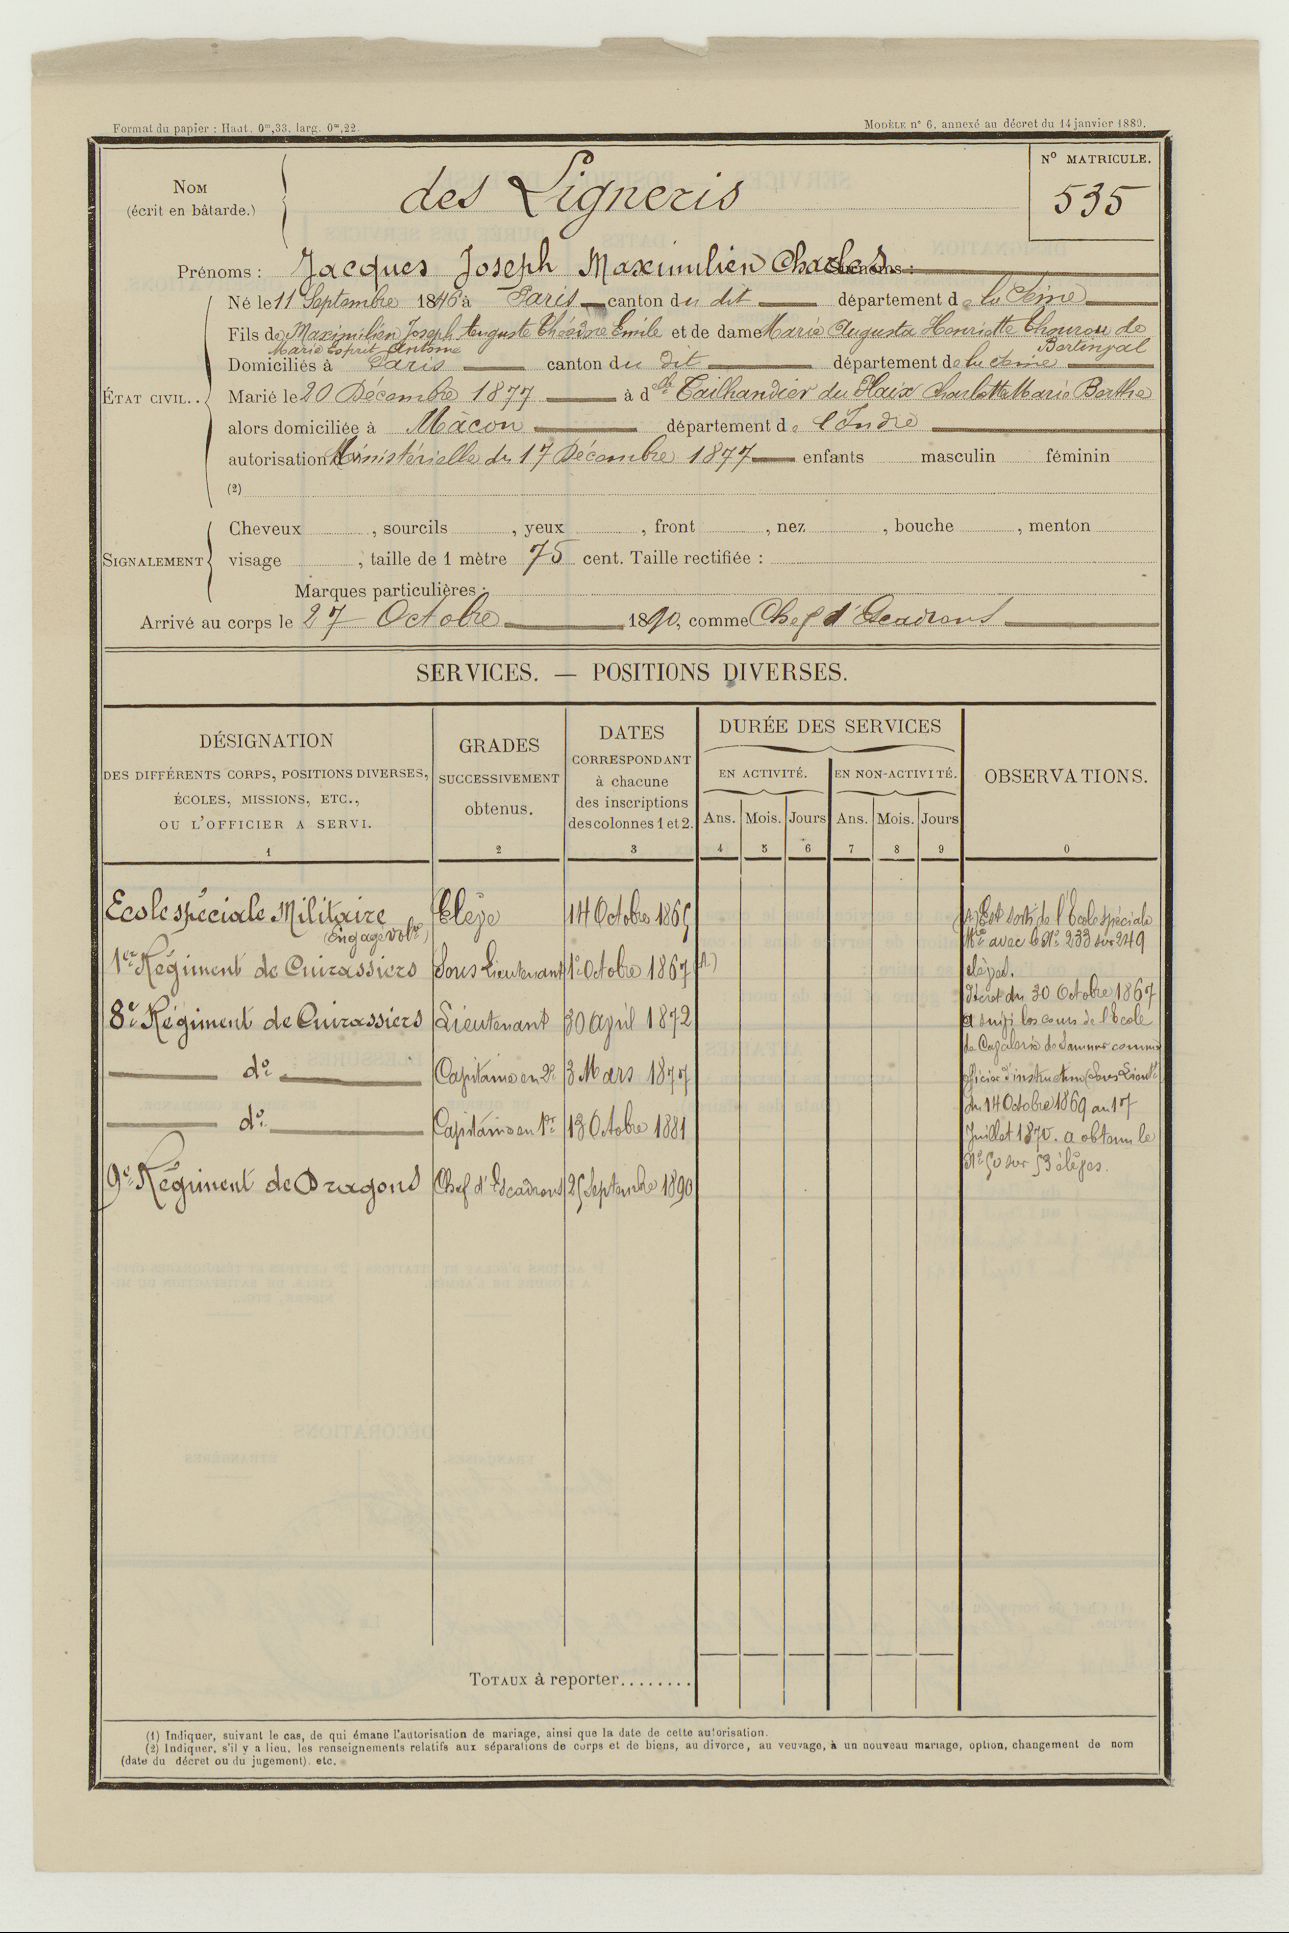 Format du papier : Haut. 0m,33, larg. 0m,22.
MODÈLE n° 6, annexé au décret du 14 janvier 1889.
NOM
(écrit en bâtarde.)
des Ligneris
N° MATRICULE.
535
Prénoms : Jacques Joseph Maximilien Charles Surnoms :
ÉTAT CIVIL..
Né le 11 Septembre 1846 à Paris canton du dit département de la Seine
Fils de Maximilien Joseph Auguste Théodre Emile et de dame Marie Augusta Henriette Thourou de
Marie Esprit Antoine Bertinval
Domiciliés à Paris canton du dit département de la Seine
Marié le 20 Décembre 1877 à dlle Tailhandier du Plaix Charlotte Marie Berthe
alors domiciliée à Mâcon département de l'Indre
autorisation Ministérielle du 17 Décembre 1877 enfants masculin féminin
(2)
SIGNALEMENT
Cheveux , sourcils , yeux , front , nez , bouche , menton
visage , taille de 1 mètre 75 cent. Taille rectifiée :
Marques particulières :
Arrivé au corps le 27 Octobre 1890, comme Chef d'Escadrons
SERVICES. — POSITIONS DIVERSES.
DÉSIGNATION
DES DIFFÉRENTS CORPS, POSITIONS DIVERSES,
ÉCOLES, MISSIONS, ETC.,
OU L'OFFICIER A SERVI.
1
GRADES
SUCCESSIVEMENT
obtenus.
2
DATES
CORRESPONDANT
à chacune
des inscriptions
des colonnes 1 et 2.
3
DURÉE DES SERVICES
EN ACTIVITÉ. EN NON-ACTIVITÉ.
Ans. Mois. Jours Ans. Mois. Jours
4 5 6 7 8 9
OBSERVATIONS.
0
Ecole spéciale Militaire Elève 14 Octobre 1865
(Engagé volre)
1er Régiment de Cuirassiers Sous Lieutenant 1er Octobre 1867 (A)
8e Régiment de Cuirassiers Lieutenant 30 April 1872
do Capitaine en 2e 3 Mars 1877
do Capitaine en 1er 13 Octobre 1881
9e Régiment de Dragons Chef d'Escadrons 25 Septembre 1890
(A) Est sorti de l'Ecole spéciale
Mre avec le No 233 sur 249
élèves.
Décret du 30 Octobre 1867
a suivi les cours de l'Ecole
de Cavalerie de Saumur comme
officier d'instruction (Sous Lieutt)
du 14 Octobre 1869 au 17
Juillet 1870. a obtenu le
No 50 sur 53 élèves.
TOTAUX à reporter........
(1) Indiquer, suivant le cas, de qui émane l'autorisation de mariage, ainsi que la date de cette autorisation.
(2) Indiquer, s'il y a lieu, les renseignements relatifs aux séparations de corps et de biens, au divorce, au veuvage, à un nouveau mariage, option, changement de nom
(date du décret ou du jugement), etc.